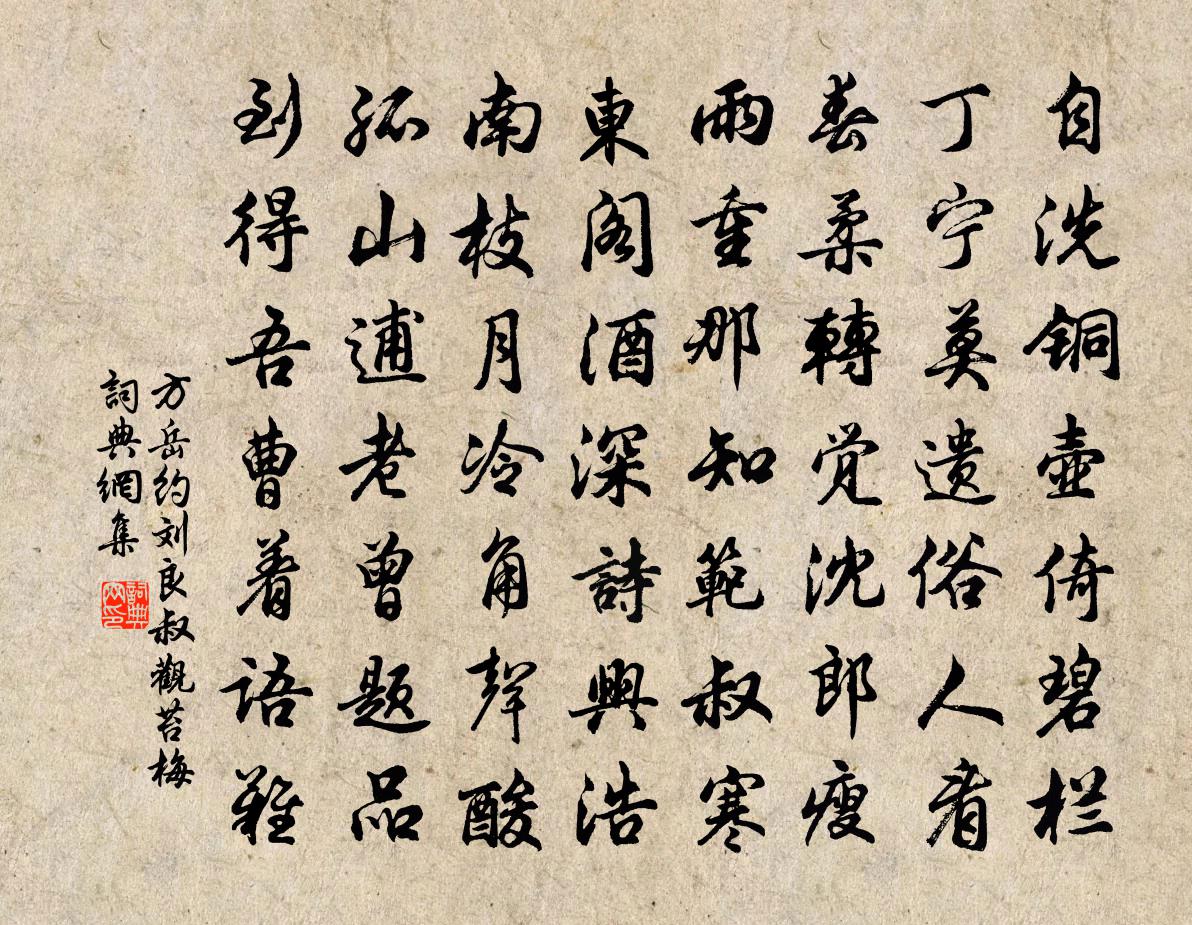 自洗铜壶倚碧栏
丁宁莫遗俗人看
春柔轉觉沈郎瘦
雨重那知範叔寒
東阁酒深詩興浩
南枝月冷角聲酸
孤山逋老曾题品
到得吾曹着语難
方岳约刘良叔觀苔梅
詞典網集
詞典网印